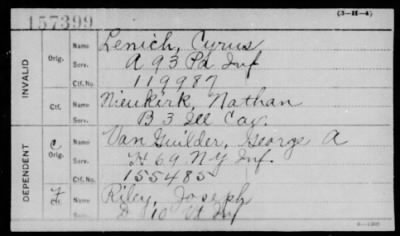 157399 (3-H-4)
INVALID
Orig. Name Lenich, Cyrus
Serv. A 93 Pa Inf
Ctf. No. 119987
Ctf. Name Nieukirk, Nathan
Serv. B 3 Ill Cav.
DEPENDENT
C Orig. Name Van Guilder, George A
Serv. H 69 N Y Inf.
Ctf. No. 155485
Ctf. Name Riley, Joseph
Serv. D 10 Inf